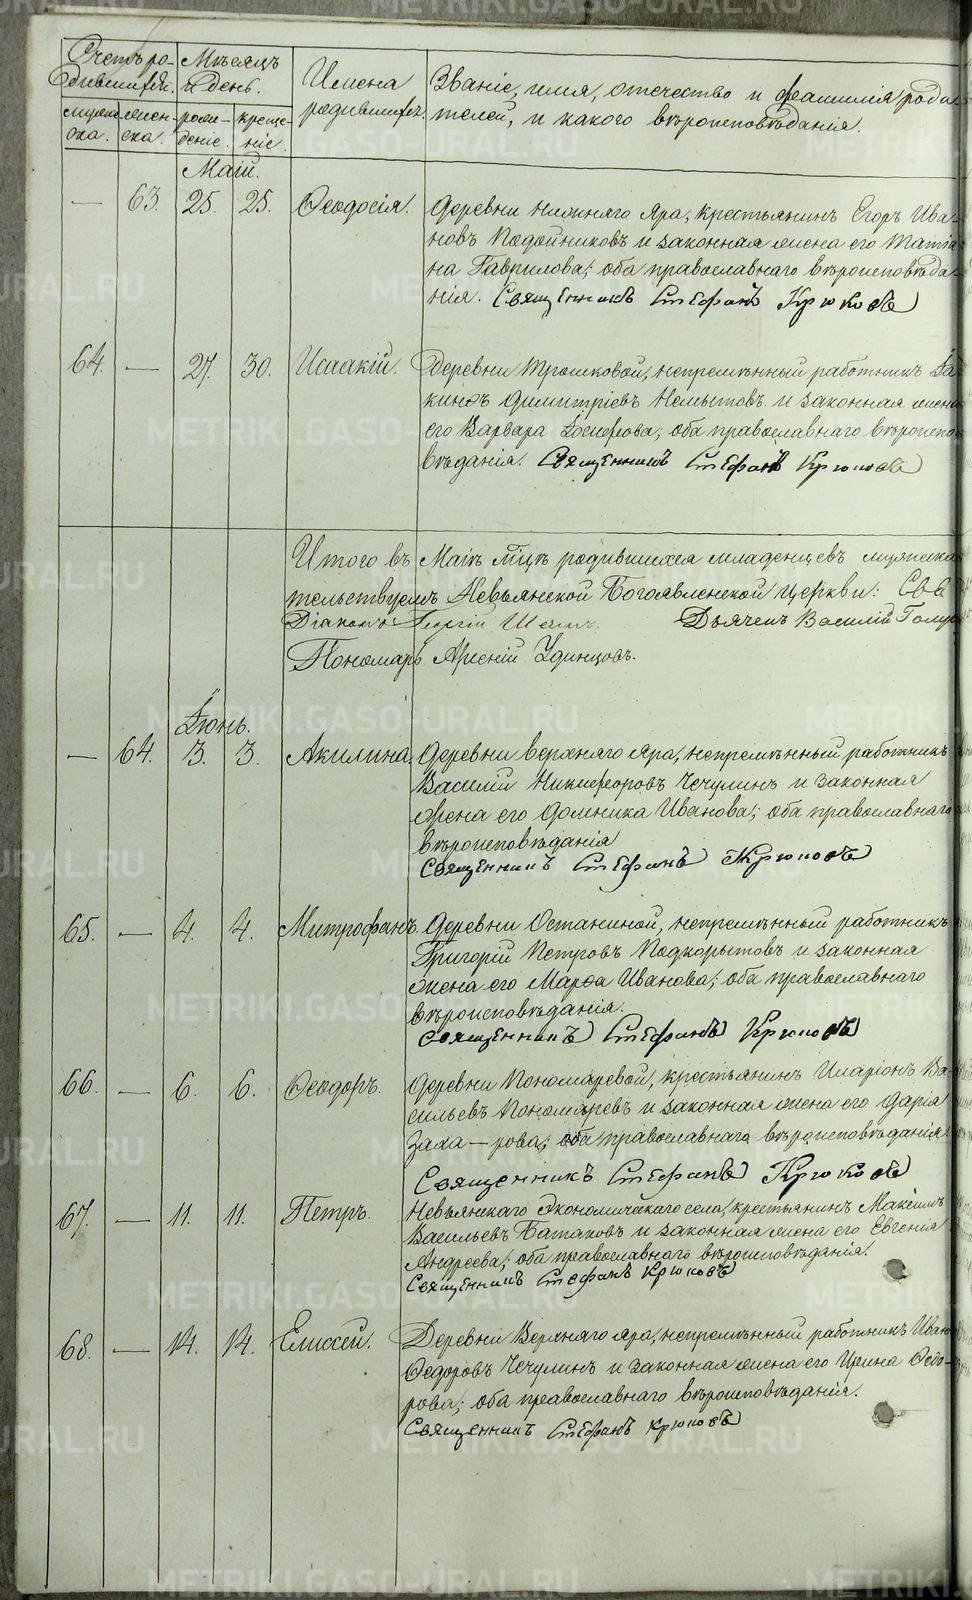 Счетъ ро- Мѣсяцъ Имена Званіе, имя, отчество и фамилія роди-
дившихся. и день. родившихся. телей, и какого вѣроисповѣданія.
мужеска. женска. рожденіе. крещеніе.
Маій.
— 63. 25. 25. Ѳеодосія. Деревни Нижняго Яра, крестьянинъ Егоръ Ива-
новъ Подойниковъ и законная жена его Татіа-
на Гаврилова; оба православнаго вѣроисповѣда-
нія. Священникъ Стефанъ Крюковъ
64. — 27. 30. Исаакій. Деревни Трошковой, непремѣнный работникъ Іа-
кинѳъ Димитріевъ Немытовъ и законная жена
его Варвара Іосифова; оба православнаго вѣроиспо-
вѣданія. Священникъ Стефанъ Крюковъ
Итого въ Маіѣ мцѣ родившихся младенцевъ мужеска
тельствуемъ Невьянской Богоявленской церкви: Свя
Діаконъ Георгій Дьячекъ Василій
Пономарь Арсеній Удинцовъ.
Іюнь.
— 64. 3. 3. Акилина. Деревни Верхняго Яра, непремѣнный работникъ
Василій Никифоровъ Чечулинъ и законная
жена его Домника Иванова; оба православнаго
вѣроисповѣданія
Священникъ Стефанъ Крюковъ
65. — 4. 4. Митрофанъ. Деревни Останиной, непремѣнный работникъ
Григорій Петровъ Подкорытовъ и законная
жена его Марѳа Иванова; оба православнаго
вѣроисповѣданія.
Священникъ Стефанъ Крюковъ
66. — 6. 6. Ѳеодоръ. Деревни Пономаревой, крестьянинъ Иларіонъ Ва-
сильевъ Пономаревъ и законная жена его Дарія
Заха—рова; оба православнаго вѣроисповѣданія.
Священникъ Стефанъ Крюковъ
67. — 11. 11. Петръ. Невьянскаго Экономическаго села, крестьянинъ Максимъ
Васильевъ Батаковъ и законная жена его Евгенія
Андреева; оба православнаго вѣроисповѣданія.
Священникъ Стефанъ Крюковъ
68. — 14. 14. Елиссей. Деревни Верхняго Яра, непремѣнный работникъ Иванъ
Ѳедоровъ Чечулинъ и законная жена его Ирина Ѳедо-
рова; оба православнаго вѣроисповѣданія.
Священникъ Стефанъ Крюковъ
METRIKI.GASO-URAL.RU